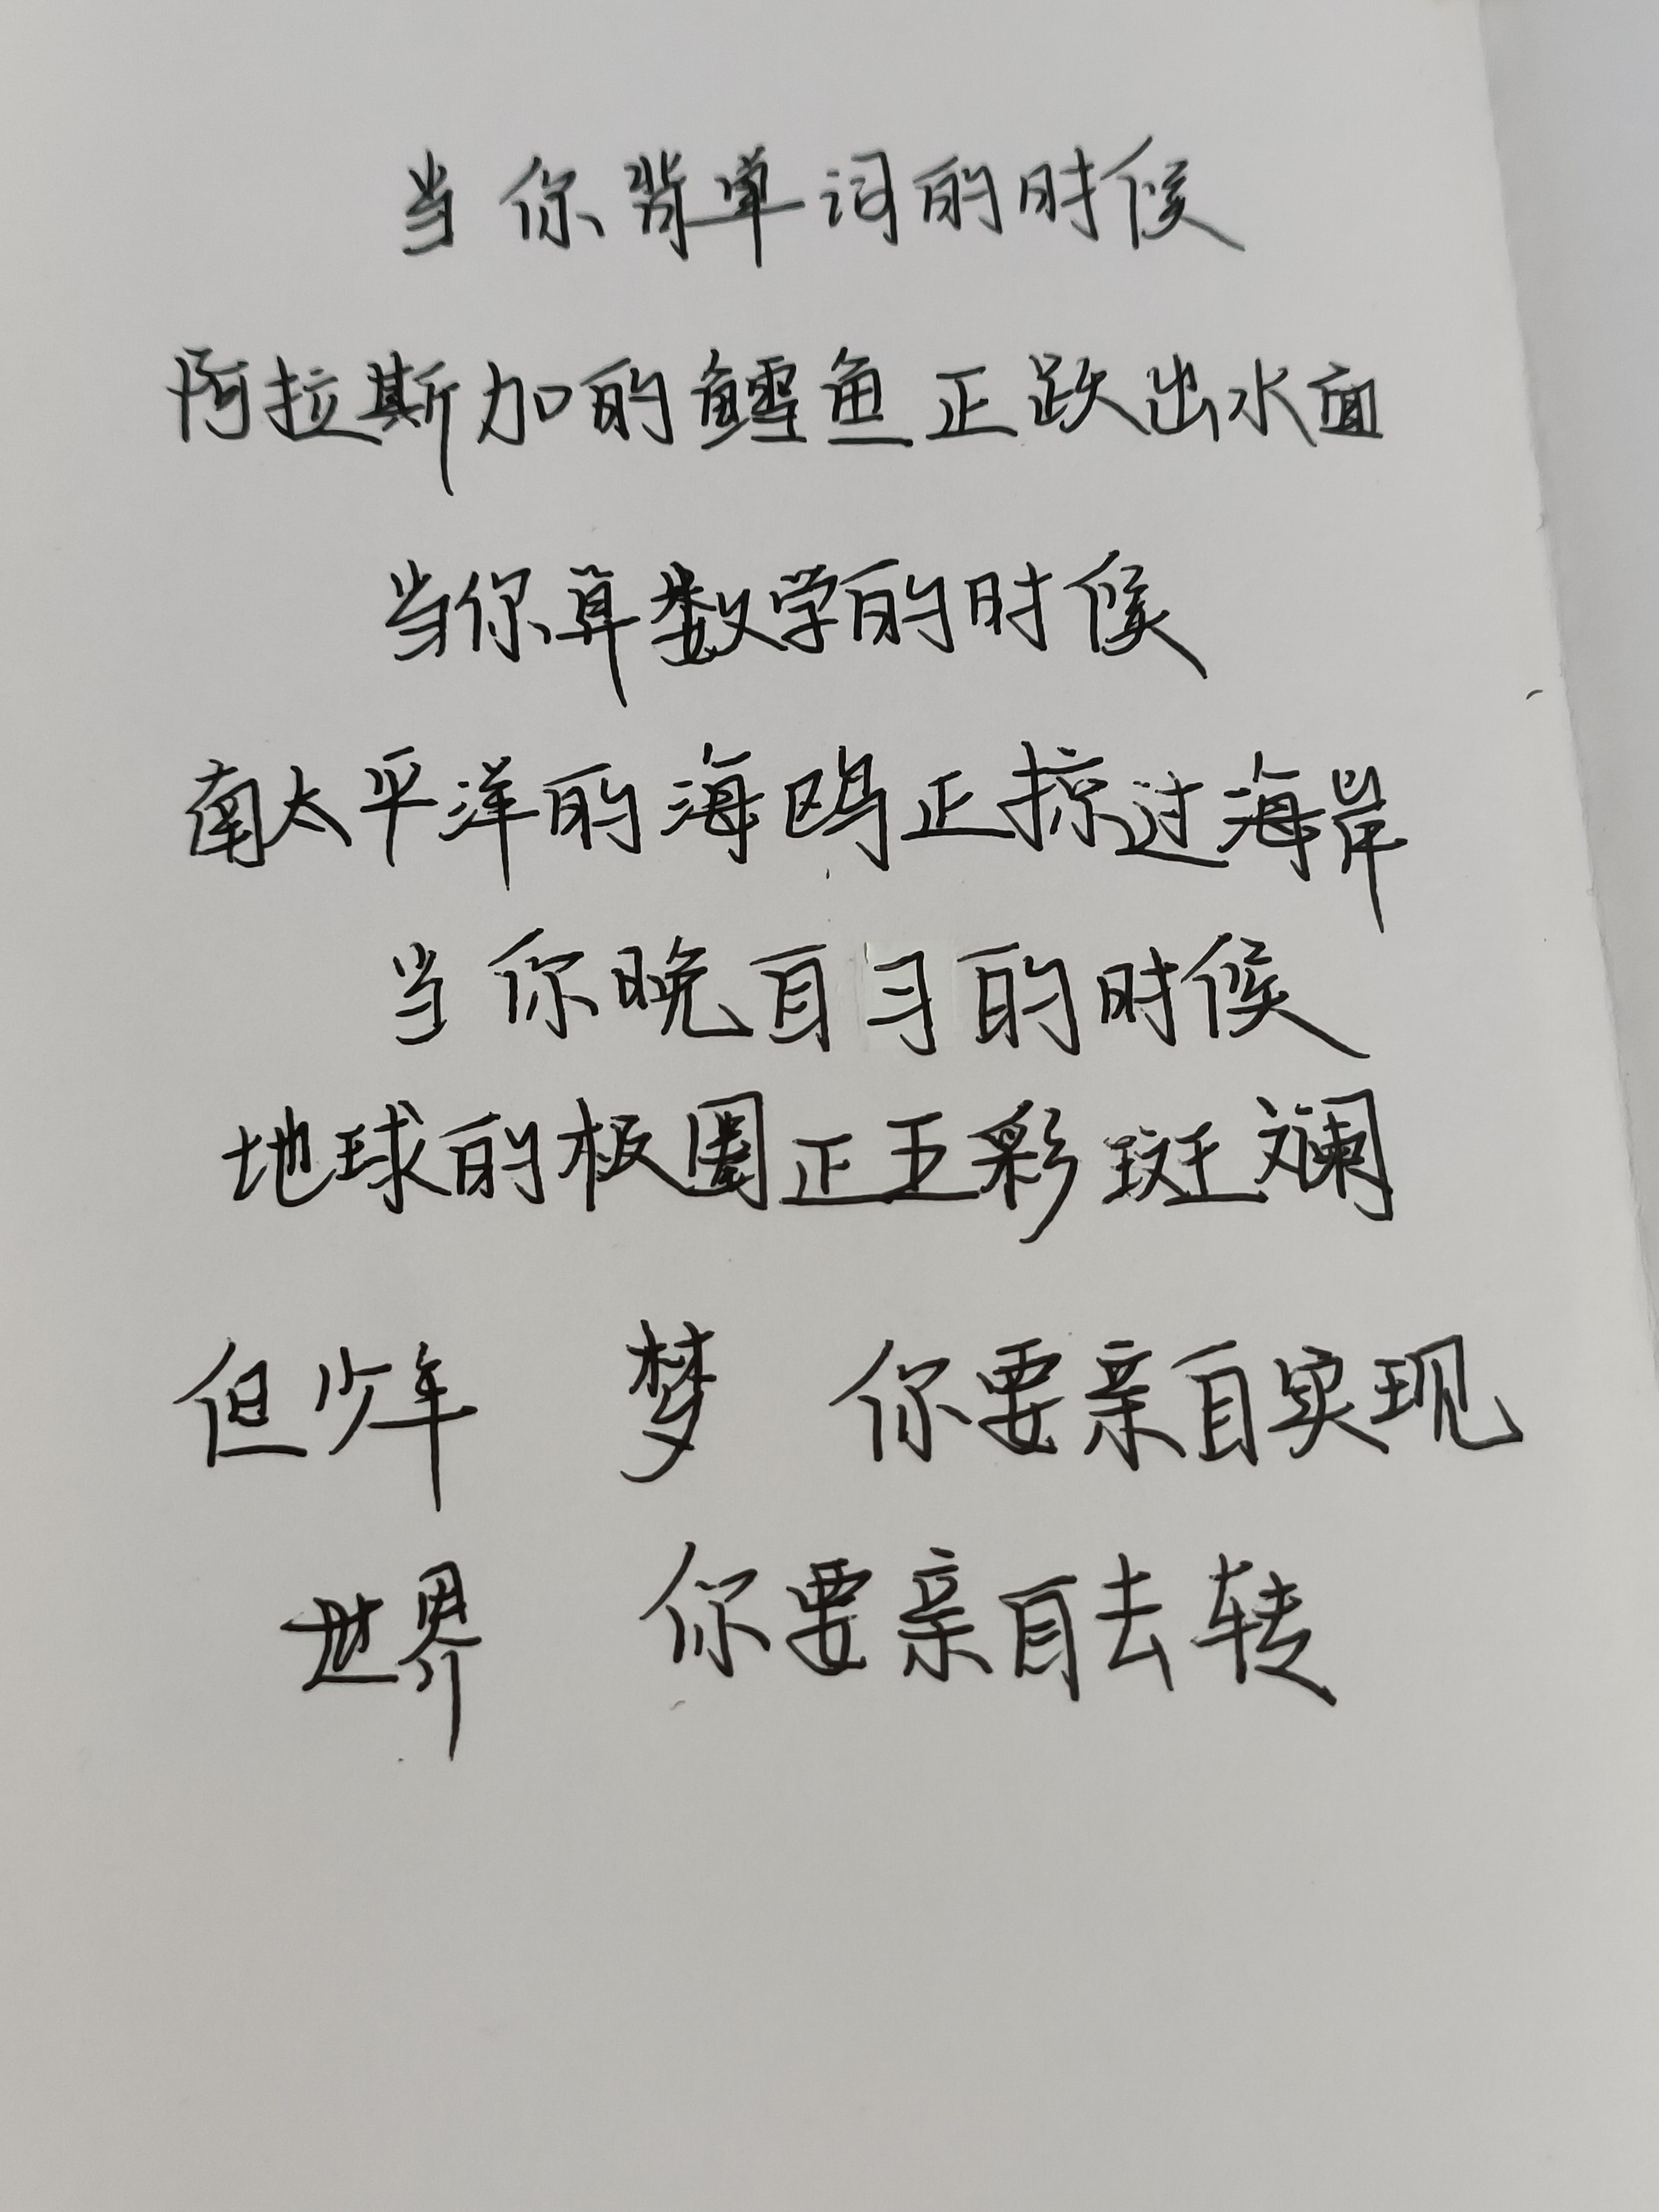 当你背单词的时候
阿拉斯加的鳕鱼正跃出水面
当你算数学的时候
南太平洋的海鸥正掠过海岸
当你晚自习的时候
地球的极圈正五彩斑斓
但少年 梦 你要亲自实现
世界 你要亲自去转